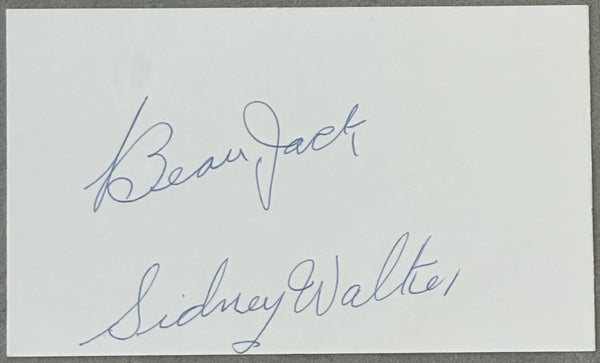 Beau Jack
Sidney Walker